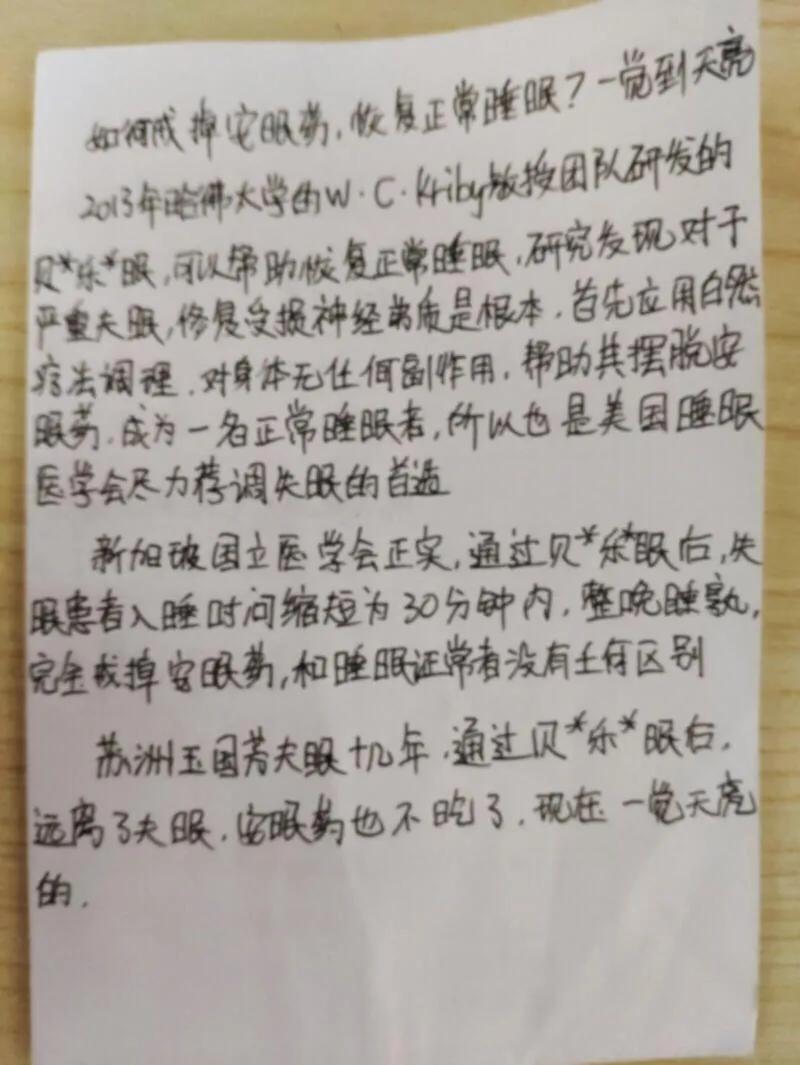 如何戒掉安眠药,恢复正常睡眠?一觉到天亮
2013年哈佛大学的W·C·Kriby教授团队研发的
贝*乐*眠,可以帮助恢复正常睡眠,研究发现对于
严重失眠,修复受损神经弟质是根本.首先应用自然
疗法调理.对身体无任何副作用,帮助其摆脱安
眠药.成为一名正常睡眠者,所以也是美国睡眠
医学会尽力荐调失眠的首选
新加坡国立医学会正实,通过贝*乐*眠后,失
眠患者入睡时间缩短为30分钟内.整晚睡熟,
完全戒掉安眠药,和睡眠证常者没有任何区别
苏洲玉国芳失眠十几年.通过贝*乐*眠后.
远离了失眠.安眠药也不吃了.现在一觉天亮
的.